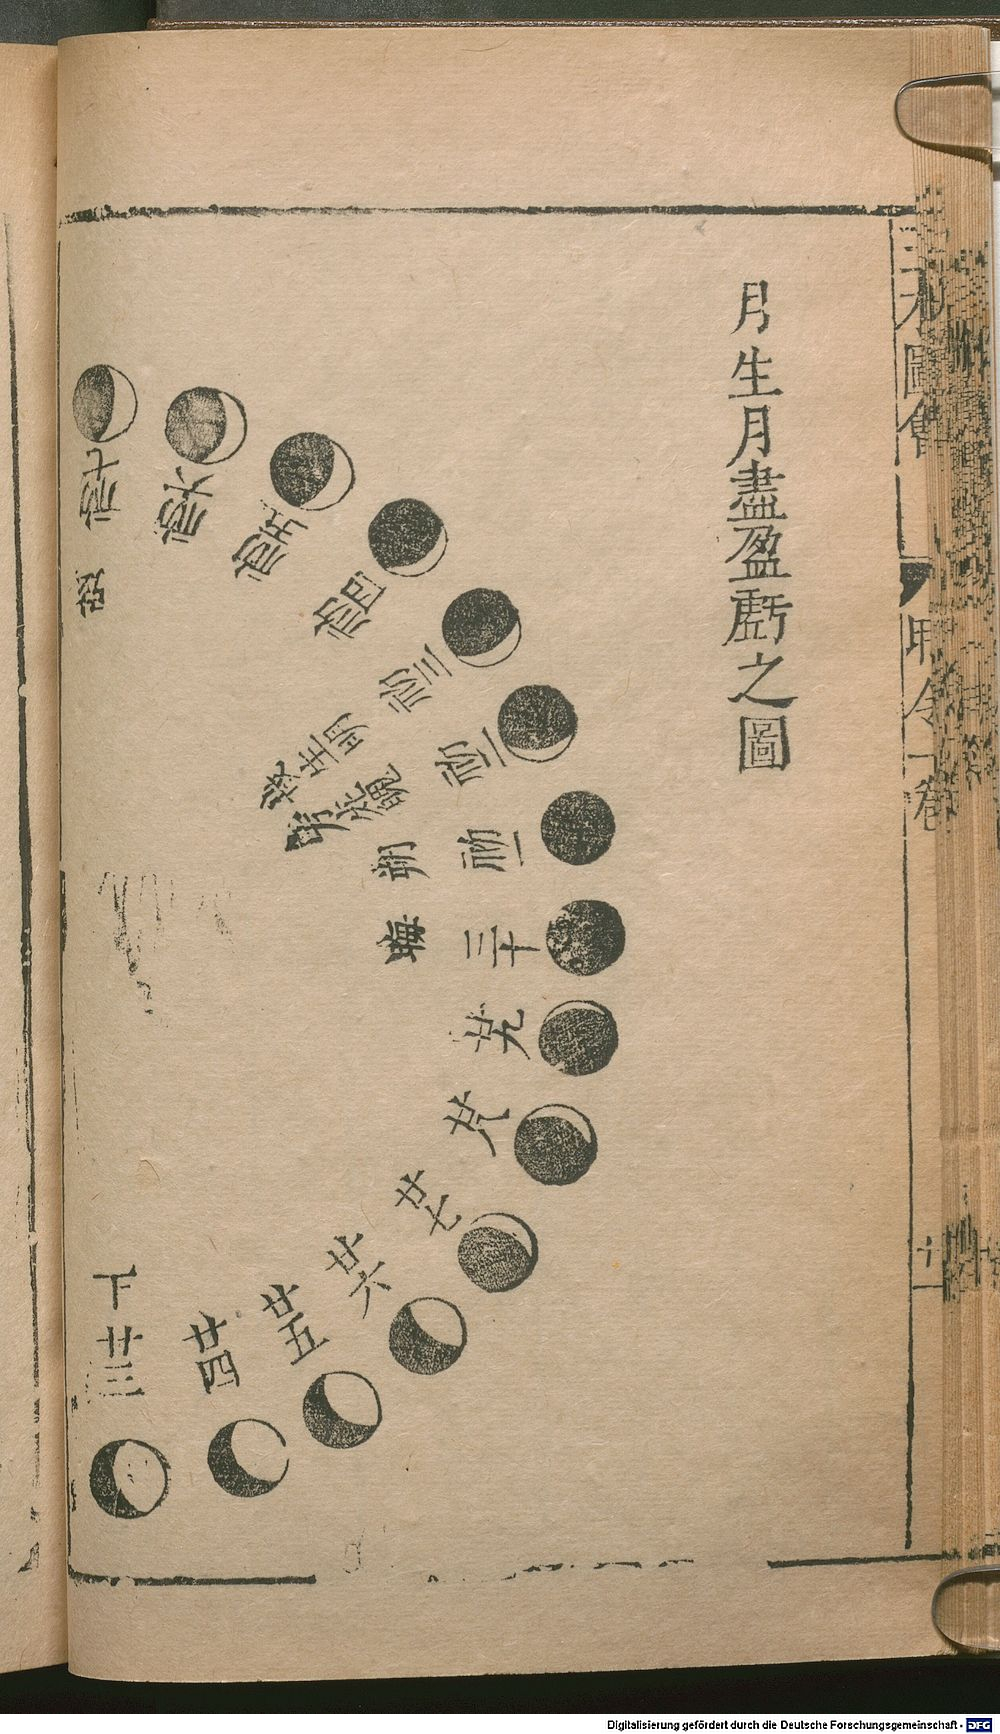 月生月盡盈虧之圖
三才圖會
時令一卷
十一
初七
弦
初六
初五
初四
初三
哉生明
初二
旁死魄
初一
朔
三十
晦
廿九
廿八
廿七
廿六
廿五
廿四
下
廿三
Digitalisierung gefördert durch die Deutsche Forschungsgemeinschaft - DFG